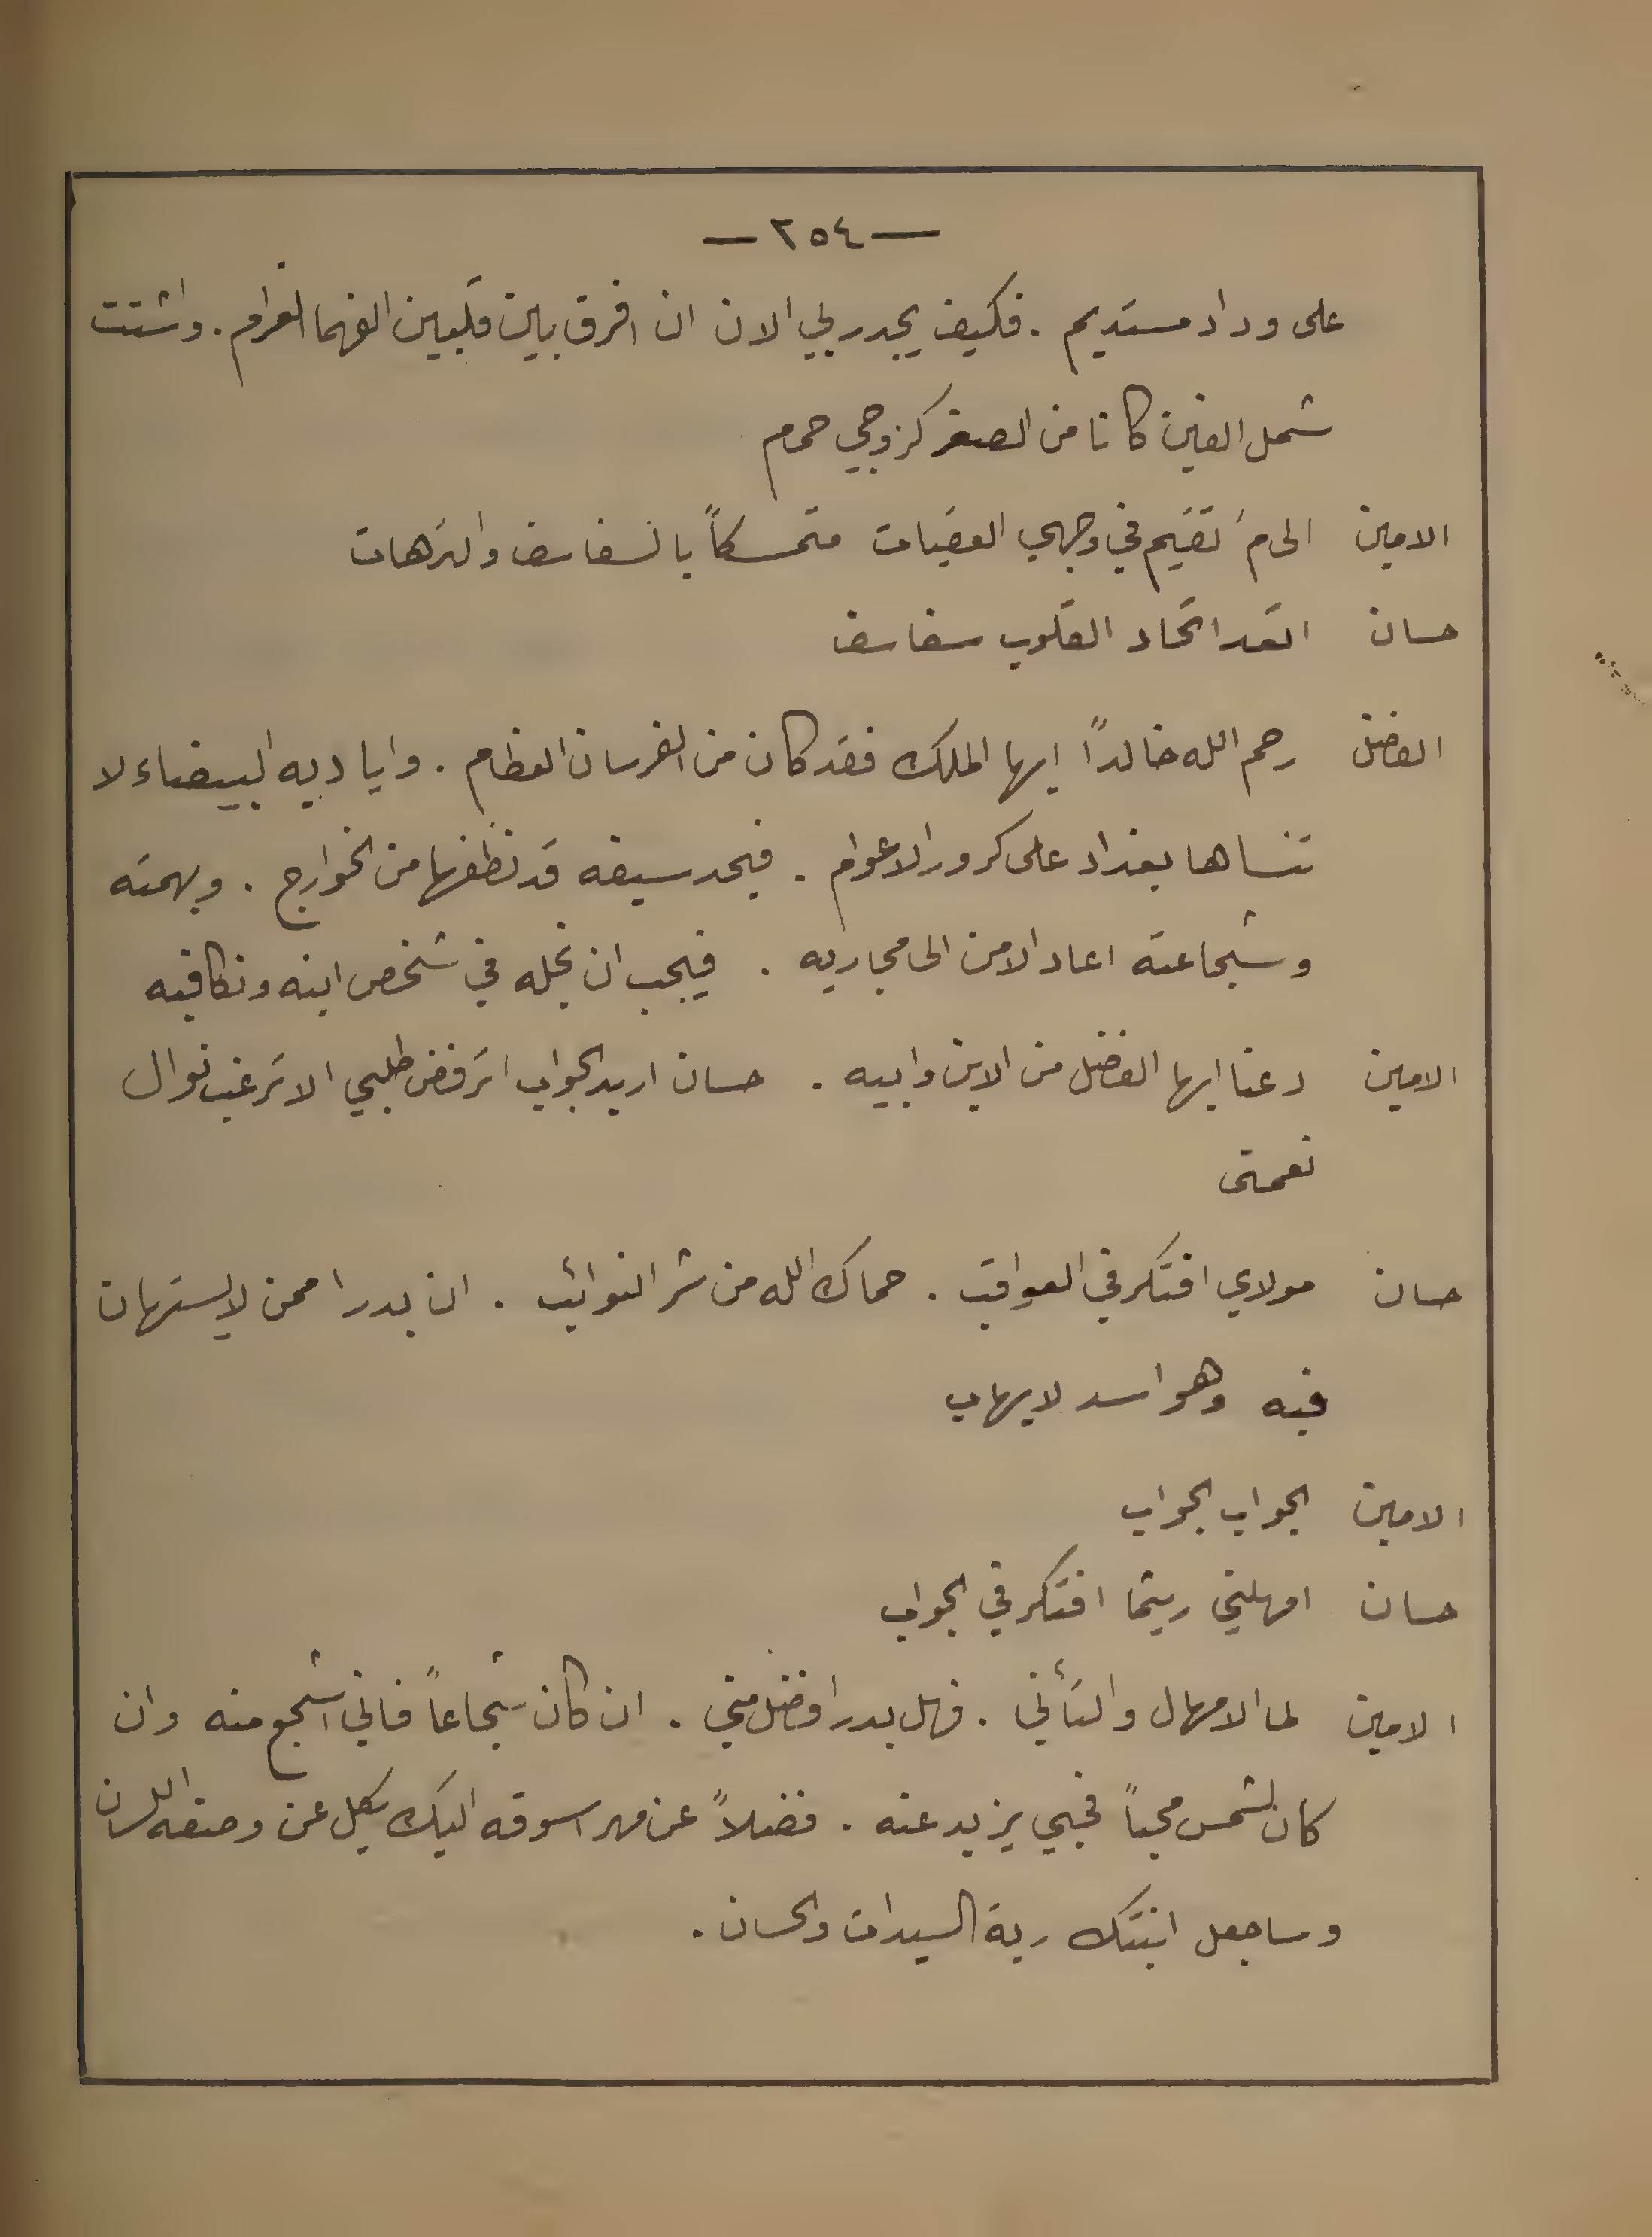 — ٢٥٤ —
على وداد مستديم . فكيف يجدر بي الان ان افرق بين قلبين الفهما الغرام . واشتت
شمل الفين كانا من الصغر كزوجي حمام
الامين الى مَ تقيم في وجهي العقبات متمسكاً بالسفاسف والترهات
حسان اتعد اتحاد القلوب سفاسف
الفضل رحم الله خالداً ايها الملك فقد كان من الفرسان العظام . واياديه البيضاء لا
تنساها بغداد على كرور الاعوام . فبحد سيفه قد نظفها من الخوارج . وبهمته
وشجاعته اعاد الامن الى مجاريه . فيجب ان نجله في شخص ابنه ونكافيه
الامين دعنا ايها الفضل من الابن وابيه . حسان اريد الجواب اترفض طلبي الا ترغب نوال
نعمتى
حسان مولاي افتكر في العواقب . حماك الله من شر النوائب . ان بدرا ممن لا يستهان
فيه وهو اسد لا يهاب
الامين الجواب الجواب
حسان امهلني ريثما افتكر في الجواب
الامين لما الامهال والتأني . فهل بدر افضل مني . ان كان شجاعاً فاني اشجع منه وان
كان لشمس محباً فحبي يزيد عنه . فضلاً عن مهر اسوقه اليك يكل عن وصفه اللسان
وساجعل ابنتك ربة السيدات والحسان .